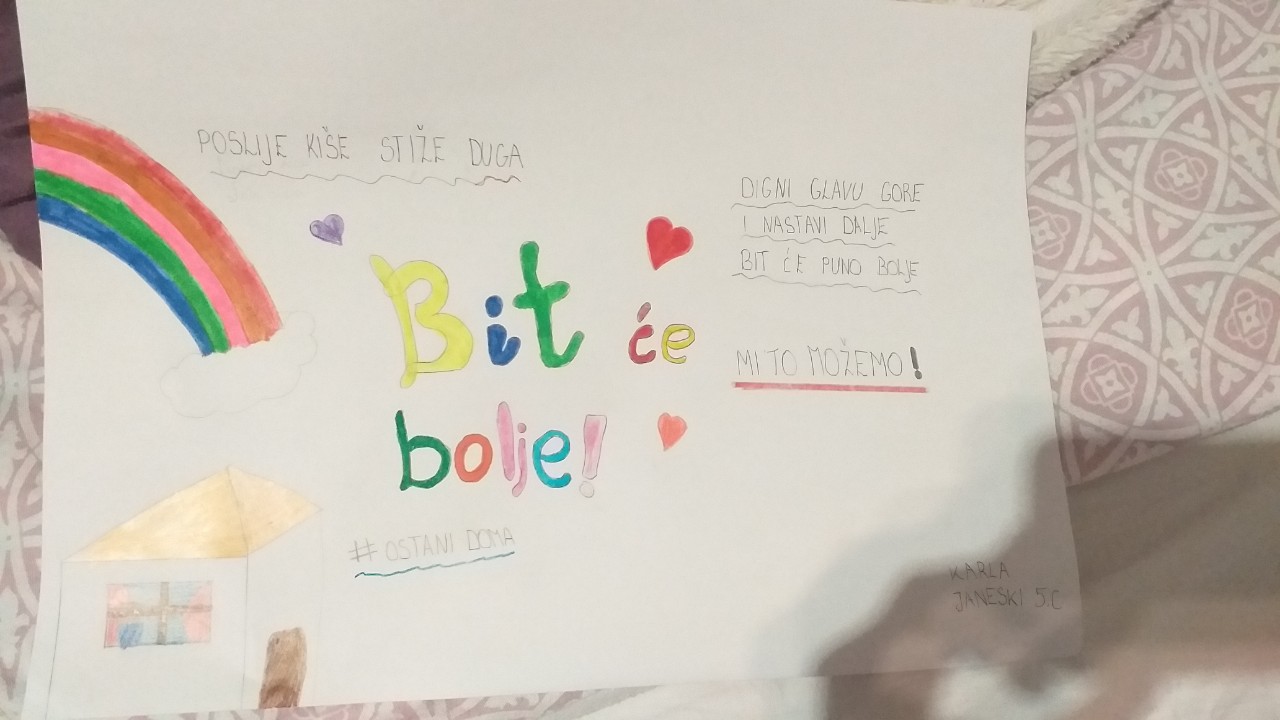 POSLIJE KIŠE STIŽE DUGA
Bit će
bolje!
# OSTANI DOMA
DIGNI GLAVU GORE
I NASTAVI DALJE
BIT ĆE PUNO BOLJE
MI TO MOŽEMO!
KARLA
JANESKI 5.C